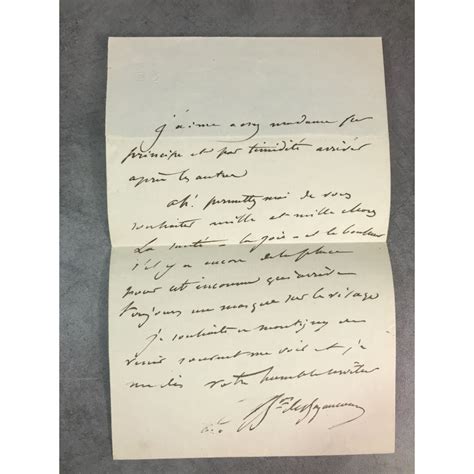 j'aime assez madame par
principe et par timidité arriver
après les autres
ah! permettez moi de vous
souhaiter mille et mille choses
La santé - la joie - et le bonheur
s'il y a encore de la place
pour cet inconnu qui arrive
toujours un masque sur le visage
je souhaite a montigny de
venir souvent me voir et je
me dis votre humble serviteur